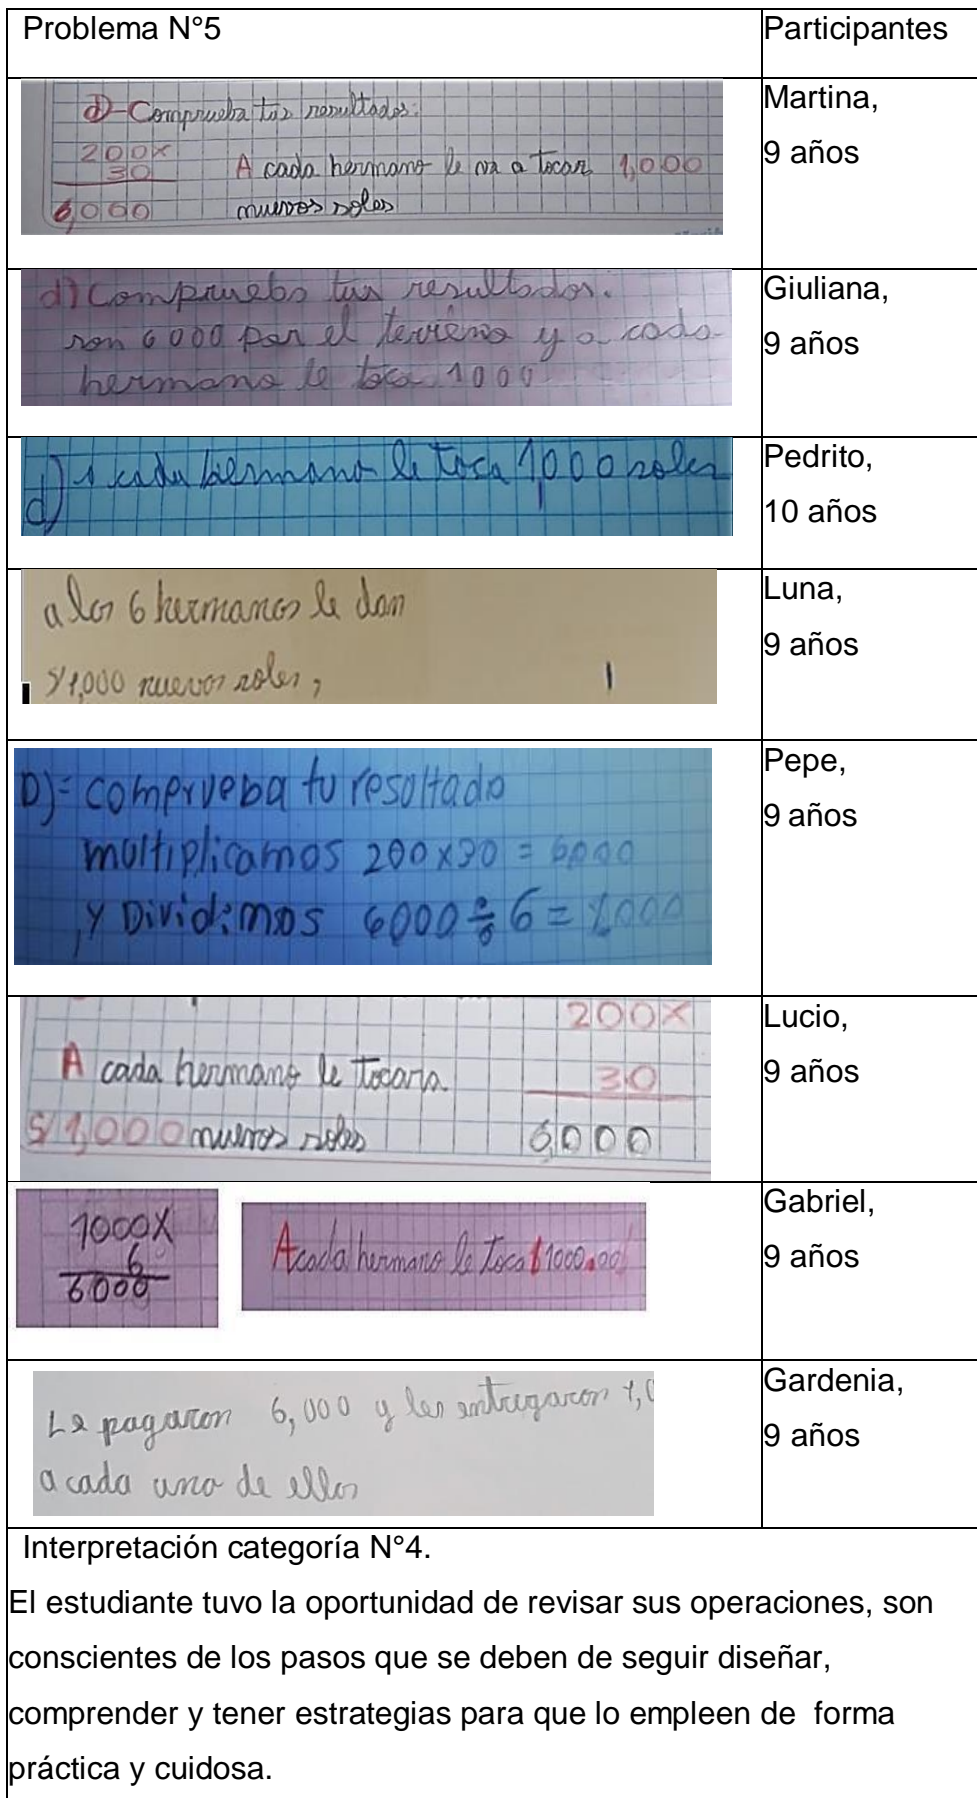 Problema N°5
Participantes
d)-Comprueba tus resultados:
200x
30
6,000
A cada hermano le va a tocar 1,000
nuevos soles
Martina,
9 años
d) Comprueba tus resultados.
son 6000 por el terreno y a cada
hermano le toca 1000
Giuliana,
9 años
d) A cada hermano le toca 1,000 soles
Pedrito,
10 años
a los 6 hermanos le dan
S/1,000 nuevos soles,
Luna,
9 años
D)= comprueba tu resoltado
multiplicamos 200x30 = 6000
y Dividimos 6000 ÷ 6 = 1,000
Pepe,
9 años
A cada hermano le tocara
S/1,000 nuevos soles
200x
30
6,000
Lucio,
9 años
1000x
6
6000
A cada hermano le toca $1000.00
Gabriel,
9 años
Le pagaron 6,000 y les entregaron 1,0
a cada uno de ellos
Gardenia,
9 años
Interpretación categoría N°4.
El estudiante tuvo la oportunidad de revisar sus operaciones, son
conscientes de los pasos que se deben de seguir diseñar,
comprender y tener estrategias para que lo empleen de forma
práctica y cuidosa.